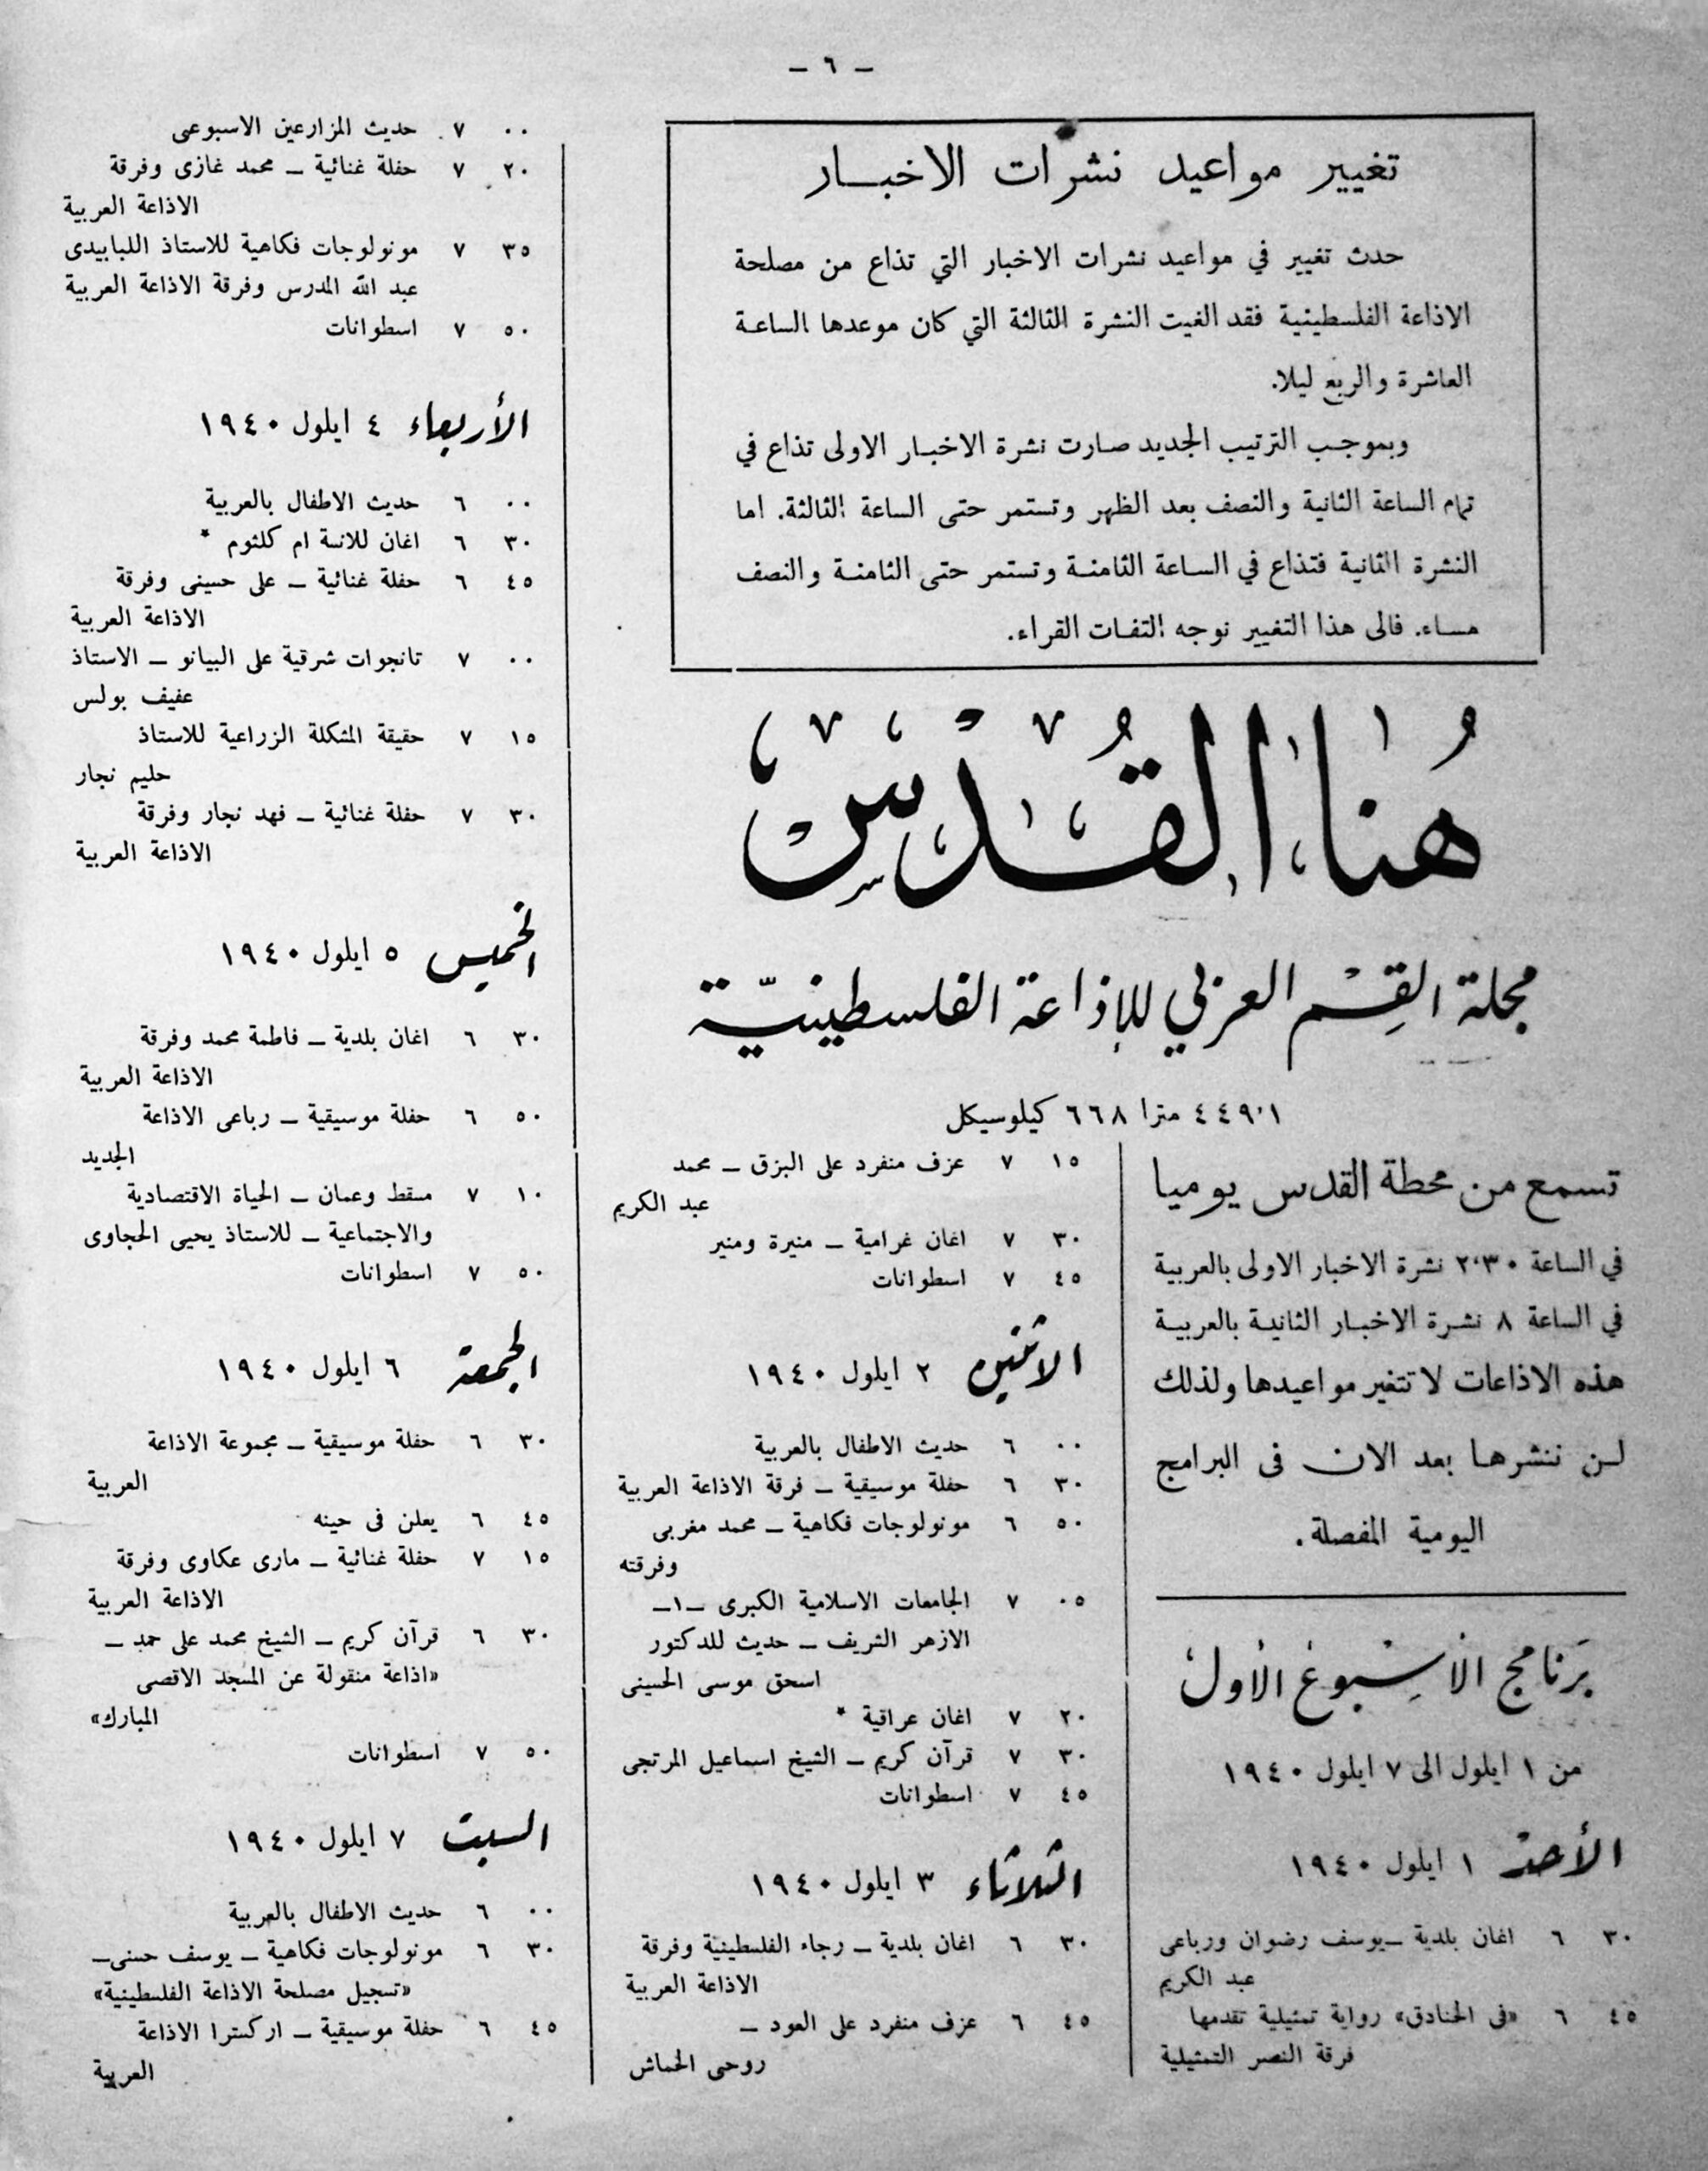 – ٦ –
تغيير مواعيد نشرات الاخبـــار
حدث تغيير في مواعيد نشرات الاخبار التي تذاع من مصلحة
الاذاعة الفلسطينية فقد الغيت النشرة الثالثة التي كان موعدها الساعـة
العاشرة والربع ليلا.
وبموجب الترتيب الجديد صارت نشرة الاخبـار الاولى تذاع في
تمام الساعة الثانية والنصف بعد الظهر وتستمر حتى الساعة الثالثة. اما
النشرة الثانية فتذاع في الساعة الثامنـة وتستمر حتى الثامنـة والنصف
مساء. فالى هذا التغيير نوجه التفـات القراء.
هُنا القُدْس
مجلة القِسْم العربي للإذاعة الفلسطينيّة
٤٤٩٬١ مترا ٦٦٨ كيلوسيكل
تسمع من محطة القدس يوميا
في الساعة ٢٬٣٠ نشرة الاخبار الاولى بالعربية
في الساعة ٨ نشـرة الاخبـار الثانيـة بالعربيـة
هذه الاذاعات لا تتغير مواعيدها ولذلك
لـن ننشرهـا بعد الان فى البرامج
اليومية المفصلة.
بَرنامج الأسْبوع الأول
من ١ ايلول الى ٧ ايلول ١٩٤٠
الأحد ١ ايلول ١٩٤٠
٣٠ ٦ اغان بلدية – يوسف رضوان ورباعى
عبد الكريم
٤٥ ٦ «فى الخنادق» رواية تمثيلية تقدمها
فرقة النصر التمثيلية
١٥ ٧ عزف منفرد على البزق – محمد
عبد الكريم
٣٠ ٧ اغان غرامية – منيرة ومنير
٤٥ ٧ اسطوانات
الاثنين ٢ ايلول ١٩٤٠
٠٠ ٦ حديث الاطفال بالعربية
٣٠ ٦ حفلة موسيقية – فرقة الاذاعة العربية
٥٠ ٦ مونولوجات فكاهية – محمد مغربى
وفرقته
٠٥ ٧ الجامعات الاسلامية الكبرى –١–
الازهر الشريف – حديث للدكتور
اسحق موسى الحسينى
٢٠ ٧ اغان عراقية *
٣٠ ٧ قرآن كريم – الشيخ اسماعيل المرتجى
٤٥ ٧ اسطوانات
الثلاثاء ٣ ايلول ١٩٤٠
٣٠ ٦ اغان بلدية – رجاء الفلسطينية وفرقة
الاذاعة العربية
٤٥ ٦ عزف منفرد على العود –
روحى الخماش
٠٠ ٧ حديث المزارعين الاسبوعى
٢٠ ٧ حفلة غنائية – محمد غازى وفرقة
الاذاعة العربية
٣٥ ٧ مونولوجات فكاهية للاستاذ اللبابيدى
عبد الله المدرس وفرقة الاذاعة العربية
٥٠ ٧ اسطوانات
الأربعاء ٤ ايلول ١٩٤٠
٠٠ ٦ حديث الاطفال بالعربية
٣٠ ٦ اغان للانسة ام كلثوم *
٤٥ ٦ حفلة غنائية – على حسينى وفرقة
الاذاعة العربية
٠٠ ٧ تانجوات شرقية على البيانو – الاستاذ
عفيف بولس
١٥ ٧ حقيقة المشكلة الزراعية للاستاذ
حليم نجار
٣٠ ٧ حفلة غنائية – فهد نجار وفرقة
الاذاعة العربية
الخميس ٥ ايلول ١٩٤٠
٣٠ ٦ اغان بلدية – فاطمة محمد وفرقة
الاذاعة العربية
٥٠ ٦ حفلة موسيقية – رباعى الاذاعة
الجديد
١٠ ٧ مسقط وعمان – الحياة الاقتصادية
والاجتماعية – للاستاذ يحيى الحجاوى
٥٠ ٧ اسطوانات
الجمعة ٦ ايلول ١٩٤٠
٣٠ ٦ حفلة موسيقية – مجموعة الاذاعة
العربية
٤٥ ٦ يعلن فى حينه
١٥ ٧ حفلة غنائية – مارى عكاوى وفرقة
الاذاعة العربية
٣٠ ٦ قرآن كريم – الشيخ محمد على حمد –
«اذاعة منقولة عن المسجد الاقصى
المبارك»
٥٠ ٧ اسطوانات
السبت ٧ ايلول ١٩٤٠
٠٠ ٦ حديث الاطفال بالعربية
٣٠ ٦ مونولوجات فكاهية – يوسف حسنى–
«تسجيل مصلحة الاذاعة الفلسطينية»
٤٥ ٦ حفلة موسيقية – اركسترا الاذاعة
العربية